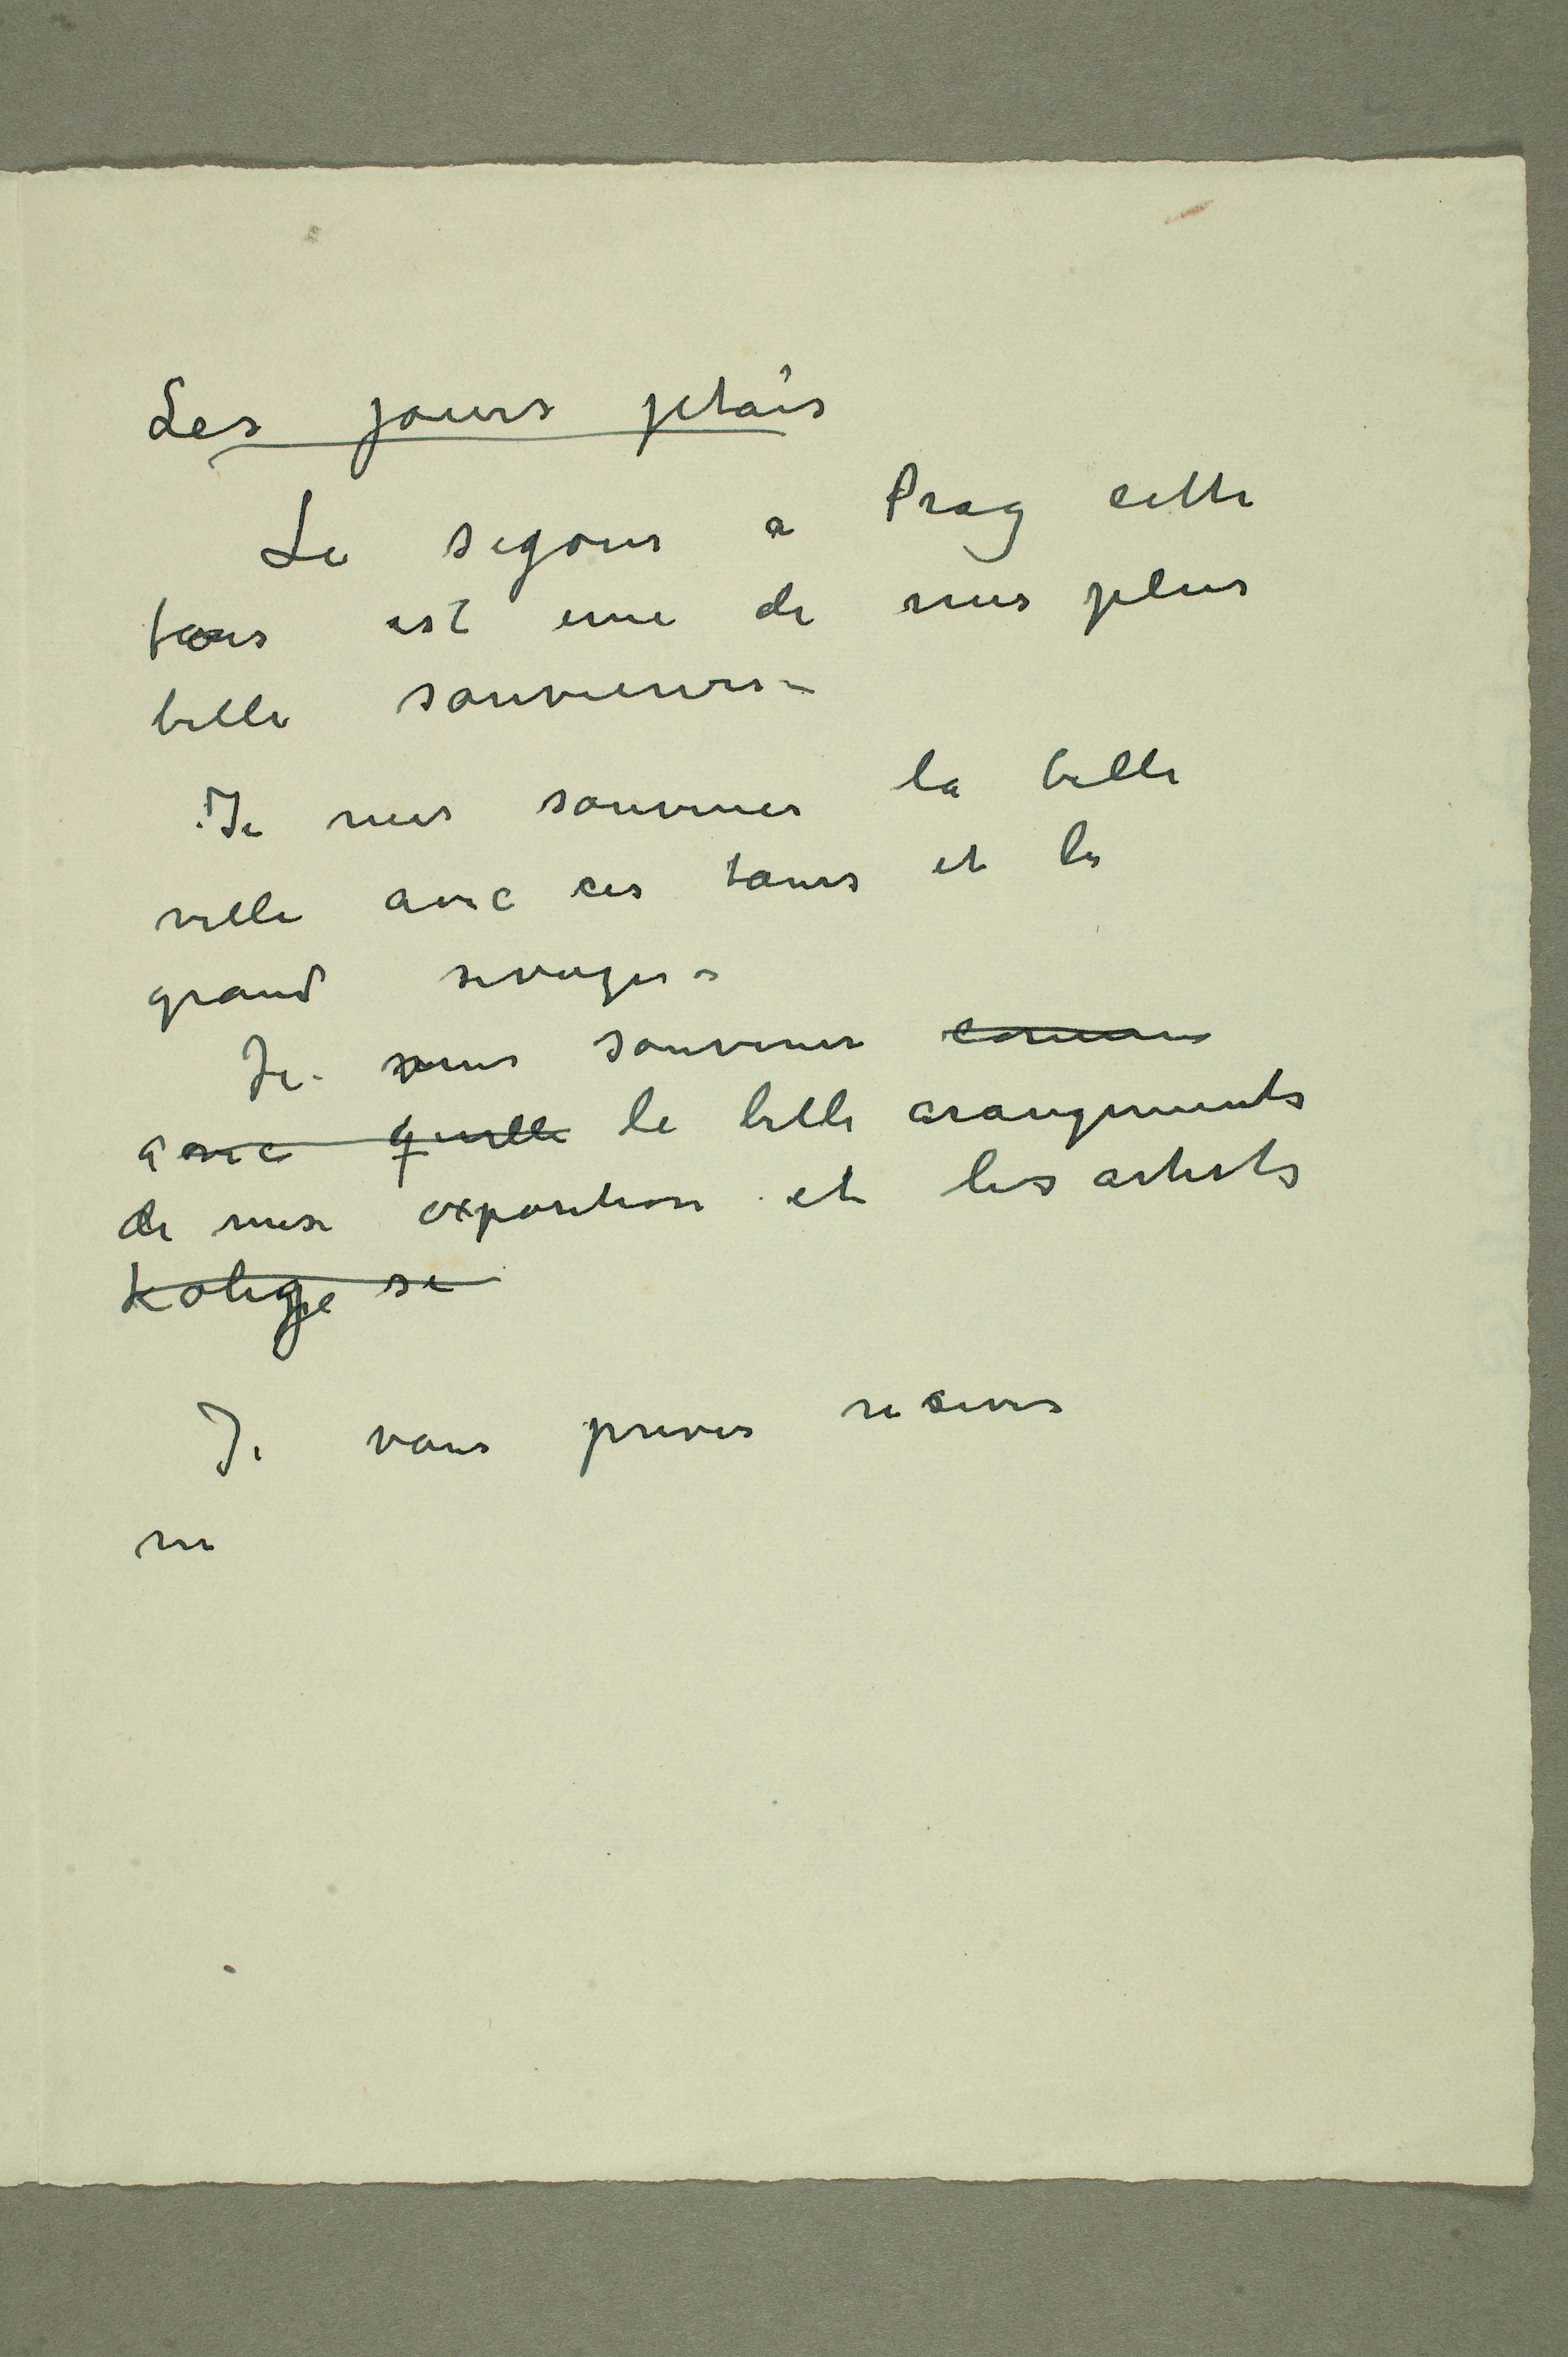 Les jours jetais
Le segour a Prag cette
fois est une de mes plus
belle souvienirs –
Je mes souvenier la belle
ville avec ces tours et les
grand
Je mes souvenir
avec quelle le belle arangements
de mese exposition et les artists
Kolege se
Je vous prives
me